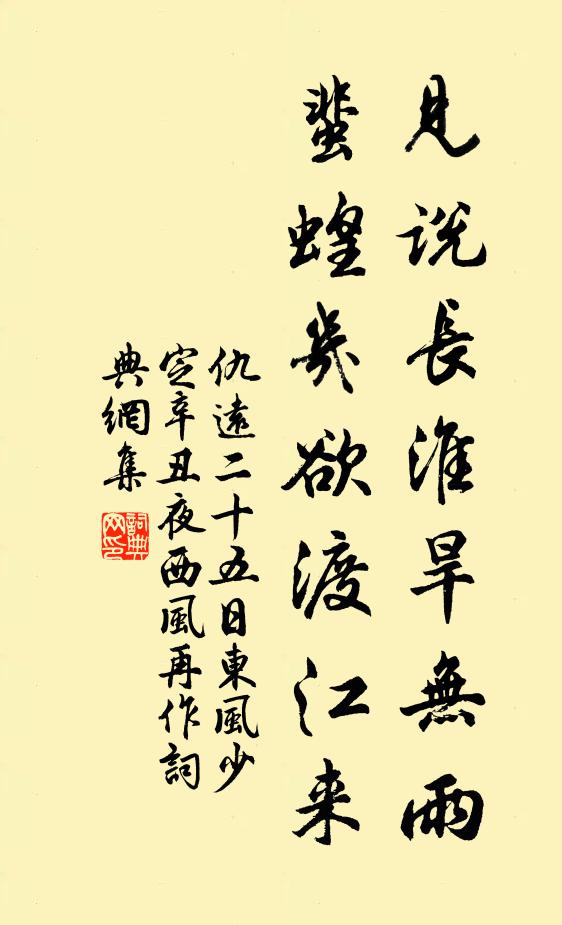 見説長淮旱無雨
蜚蝗幾欲渡江来
仇遠二十五日東風少
定辛丑夜西風再作詞
典網集
詞典網印